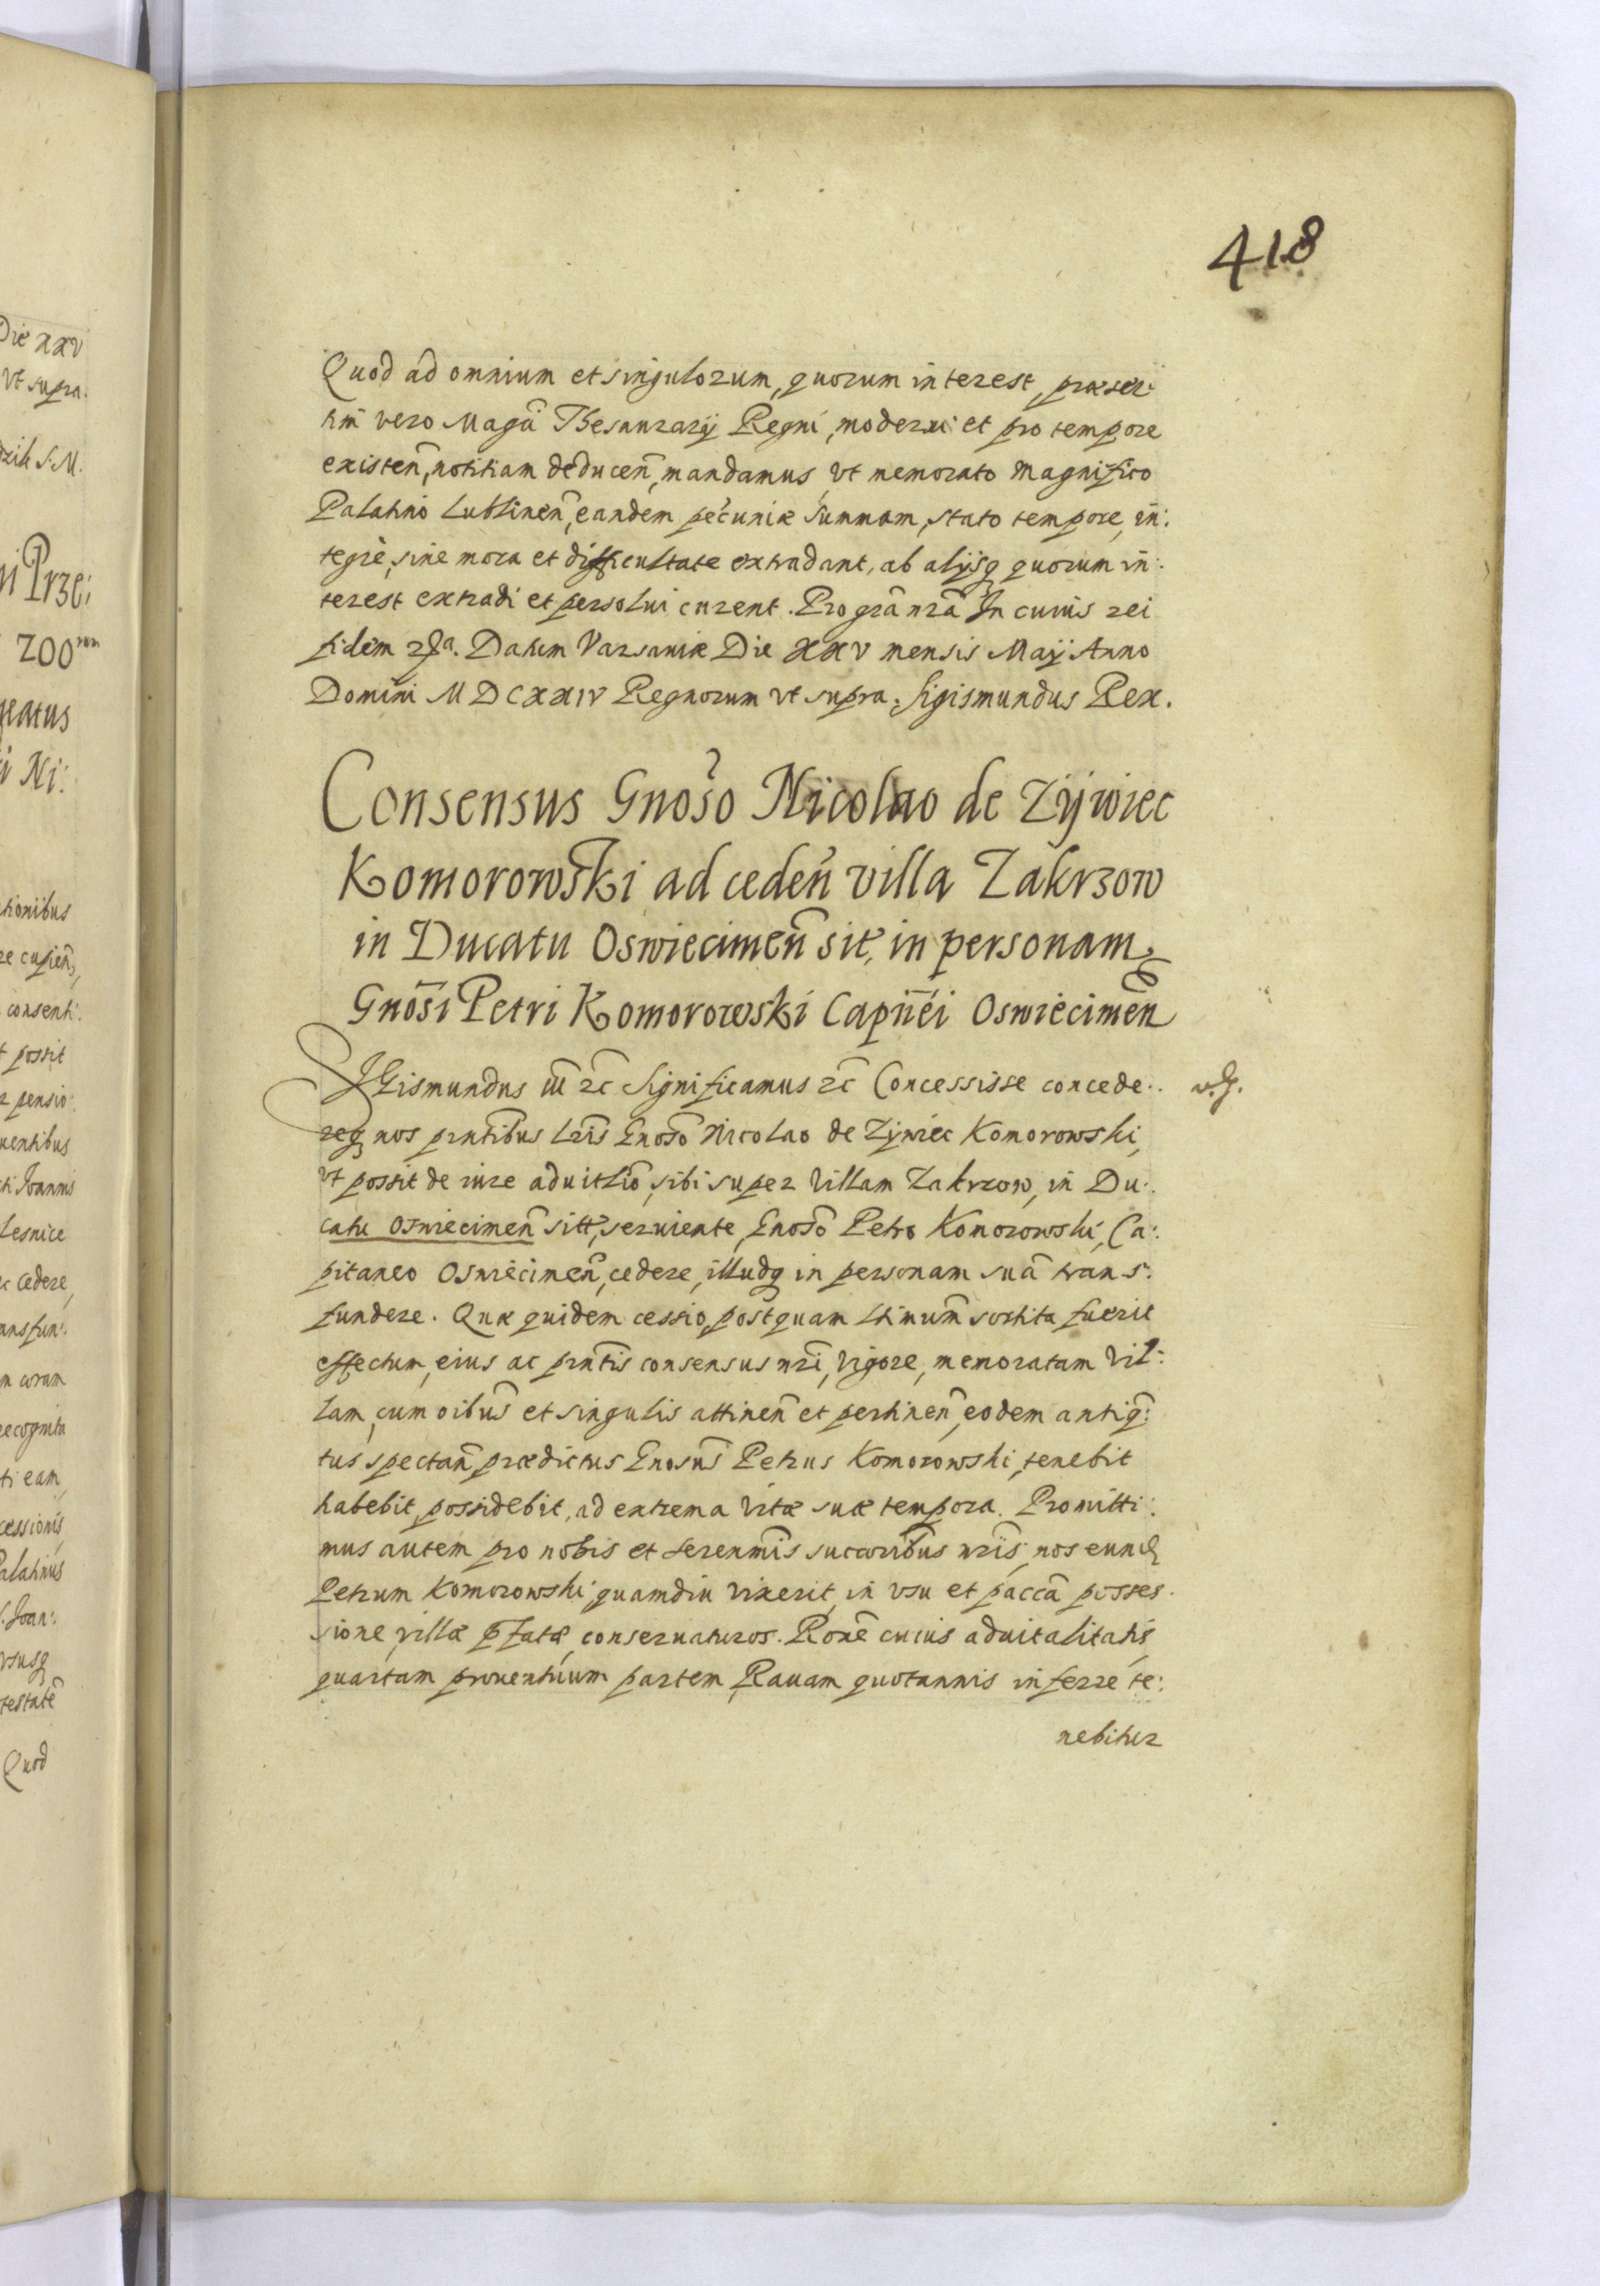 418
Quod ad omnium et singulorum, quorum interest, præser:
tim vero Magci Thesaurarij Regni, moderni et pro tempore
existen, notitiam deducen, mandamus, vt memorato Magnifico
Palatino Lublinen, eandem pecuniæ summam, stato tempore, in:
tegre, sine mora et difficultate extradant, ab alijsq quorum in:
terest extradi et persolui curent. Pro gra nra In cuius rei
fidem
Datum Varsauiæ Die XXV mensis Maij Anno
Domini MDCXXIV Regnorum vt supra. Sigismundus Rex.
Consensus Gnoso Nicolao de Zijwiec
Komorowski ad ceden villa Zakrzow
in Ducatu Oswiecimen sit, in personam
Gnosi Petri Komorowski Capnei Oswiecimen
SIGismundus III zc Significamus zc Concessisse concede:
req nos pntibus lris Gnoso Nicolao de Zijwiec Komorowski,
vt possit de iure aduitlio, sibi super Villam Zakrzow, in Du:
catu Oswiecimen sitt, seruiente, Gnoso Petro Komorowski, Ca:
pitaneo Oswiecimen, cedere, illudq in personam sua trans:
fundere. Quæ quidem cessio, postquam ltimum sortita fuerit
effectum, eius ac pntis consensus nri, vigore, memoratam Vil:
lam, cum oibus et singulis attinen et pertinen, eodem antiq:
tus spectan, prædictus Gnosus Petrus Komorowski, tenebit
habebit, possidebit, ad extrema vitæ suæ tempora. Promitti:
mus autem pro nobis et Serenmis succoribus nris, nos eund
Petrum Komorowski, quamdiu vixerit, in vsu et pacca posses
sione, villæ pfatæ, conseruaturos. Rone cuius aduitalitatis,
quartam prouentuum partem, Rauam quotannis inferre te:
nebitur